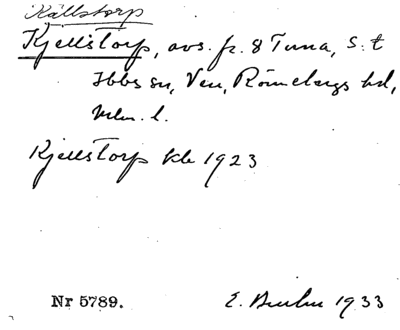 Källstorp
Kjellstorp, avs. fr. 8 Tuna, S:t
Ibbs sn, Ven, Rönnebergs hd,
Mlm. l.
Kjellstorp kb 1923
Nr 5789.
E. 1933